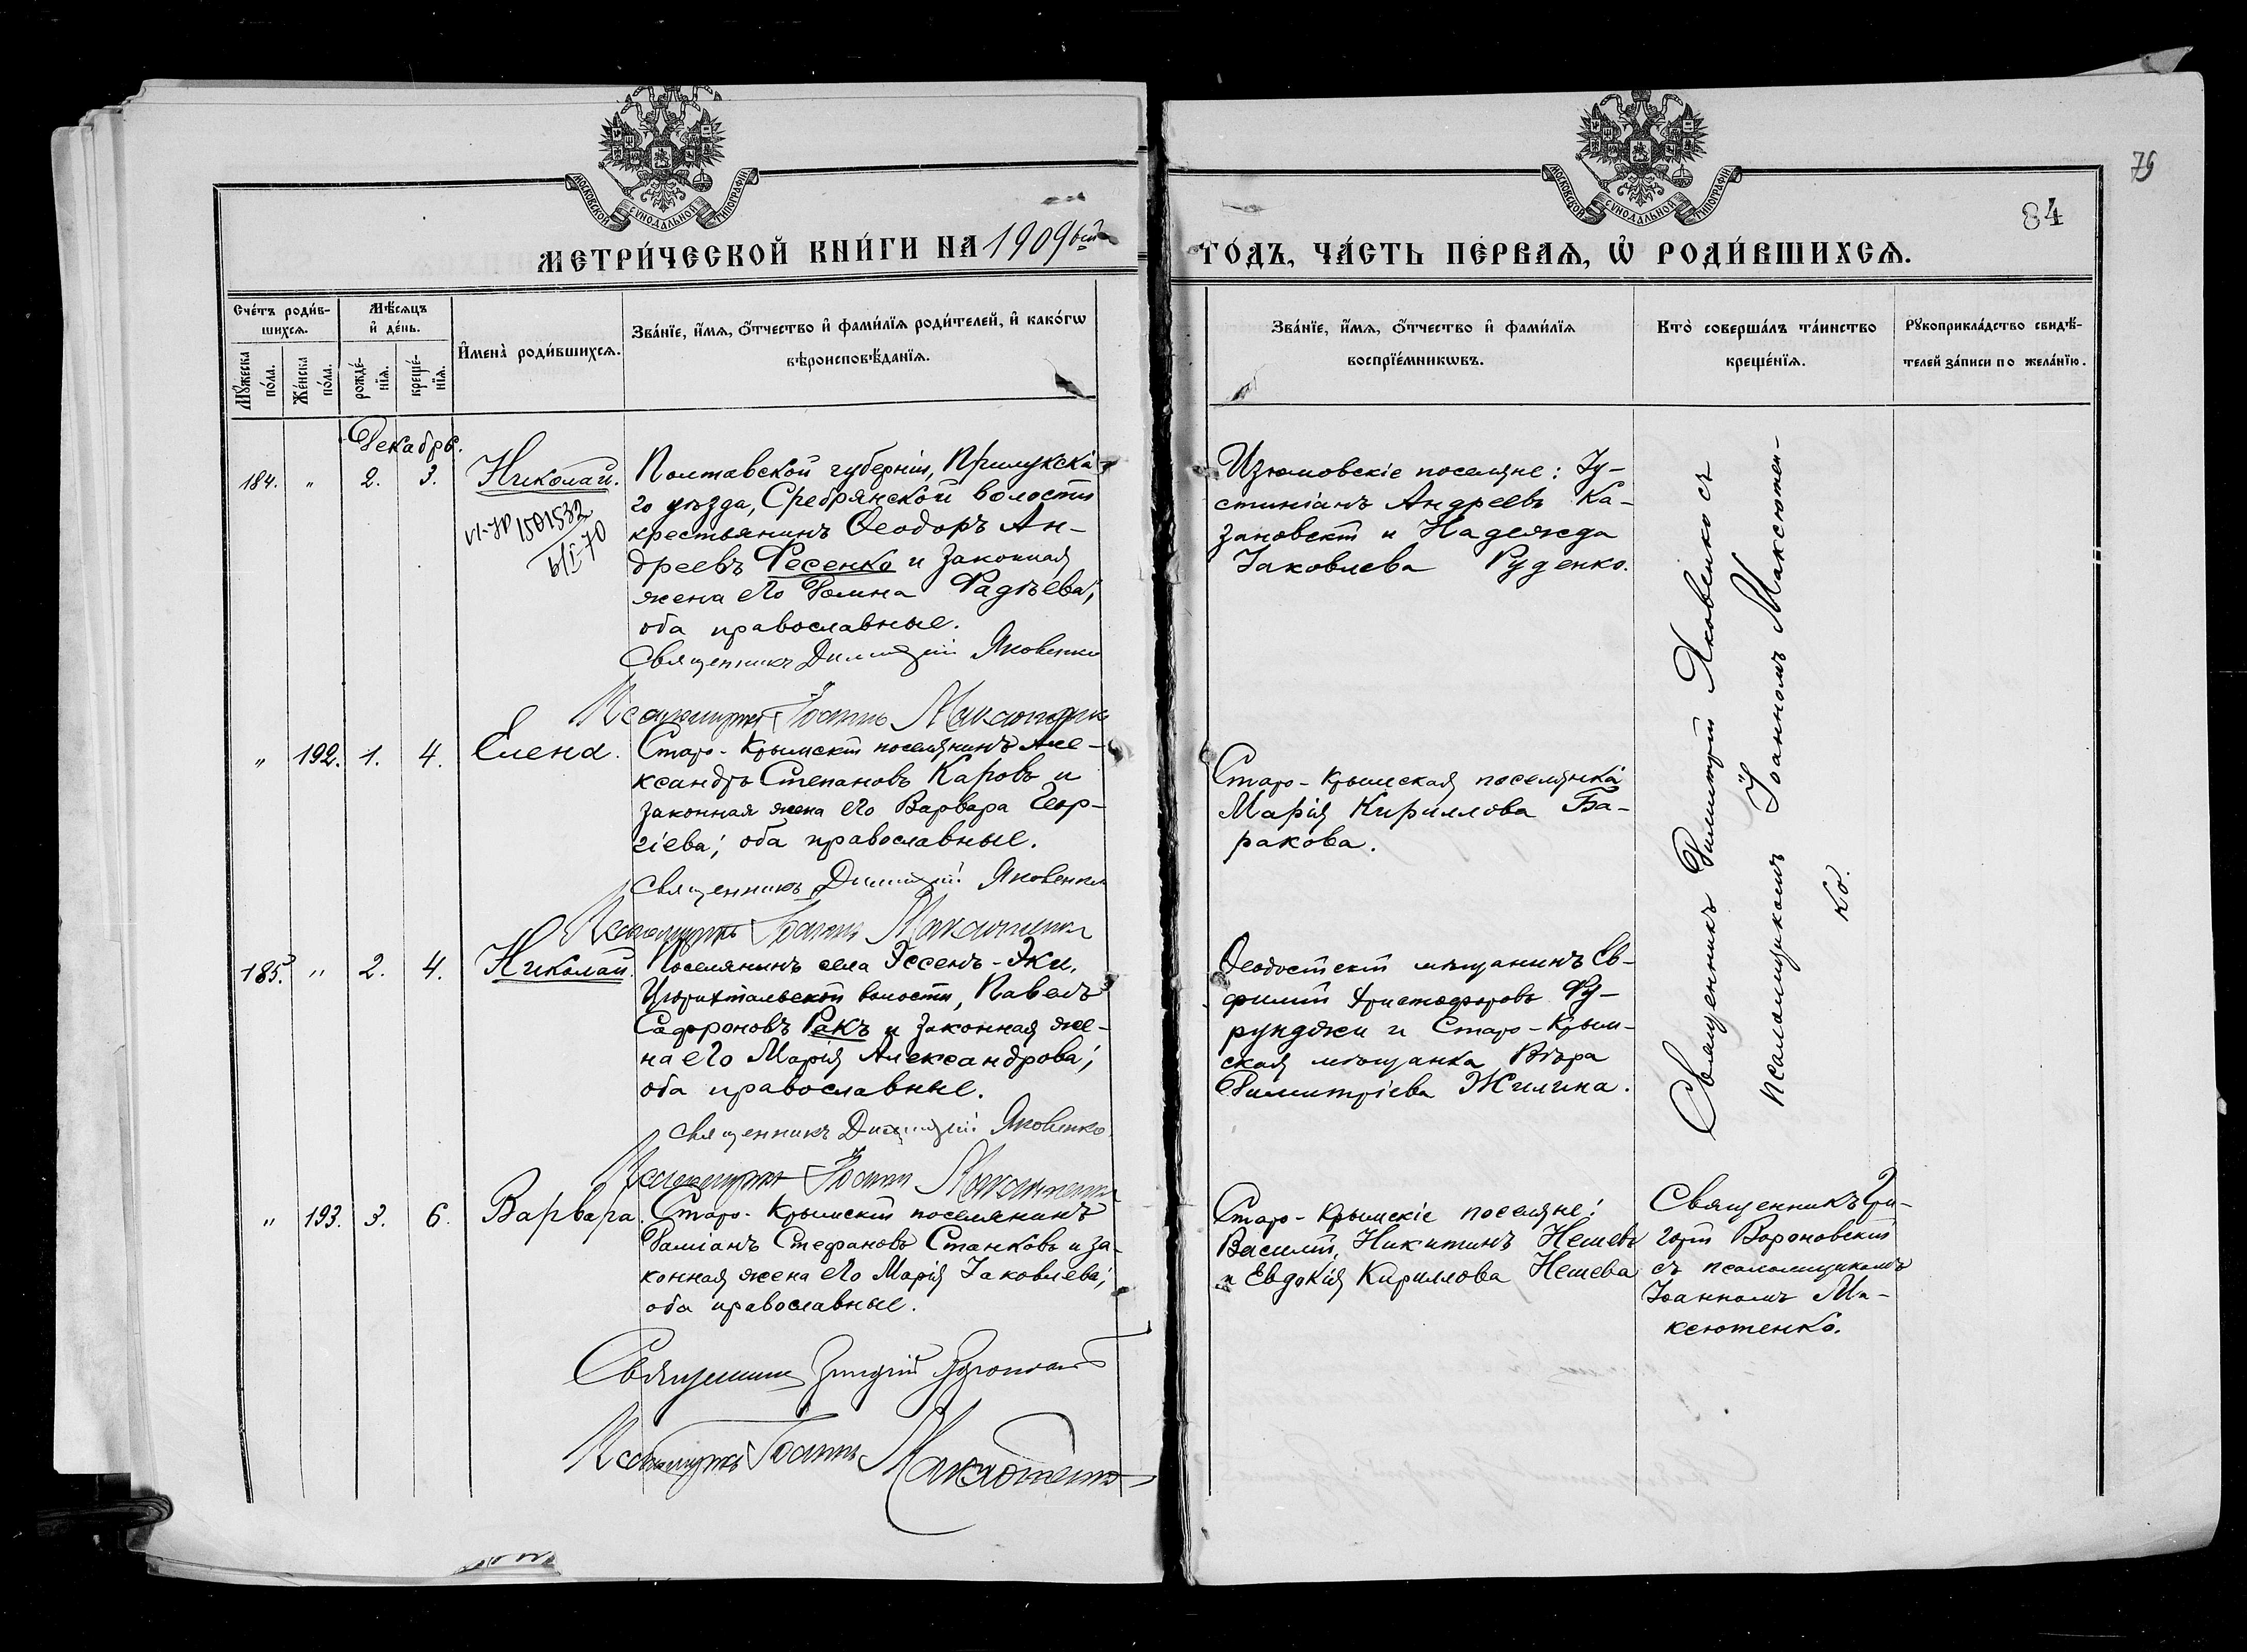 МОСКОВСКОЙ СУНОДАЛЬНОЙ ТИПОГРАФІИ
МОСКОВСКОЙ СУНОДАЛЬНОЙ ТИПОГРАФІИ
79
84
МЕТРИ́ЧЕСКОЙ КНИ́ГИ НА 1909
ГО́ДЪ, ЧА́СТЬ ПЕ́РВАѦ, Ѡ҆ РОДИ́ВШИХСѦ.
Сче́тъ роди́в-
шихсѧ.
Мꙋжеска по́ла.
Же́нска по́ла.
Мѣ́сѧцъ
и҆ де́нь.
рожде́-
нїѧ.
креще́-
нїѧ.
И҆мена̀ роди́вшихсѧ.
Зва́нїе, и҆́мѧ, ѻ҆́тчество и҆ фами́лїѧ роди́телей, и҆ како́гѡ
вѣроисповѣ́данїѧ.
Зва́нїе, и҆́мѧ, ѻ҆́тчество и҆ фами́лїѧ
воспрїе́мникѡвъ.
Кто̀ соверша́лъ та́инство
креще́нїѧ.
Рꙋкоприкла́дство свидѣ́-
телей за́писи по жела́нїю.
Декабрь.
184. " 2. 3. Николай.
1501532
Полтавской губерніи, Прилукска-
го уѣзда, Сребрянской волости
крестьянинъ Ѳеодоръ Ан-
дреевъ Фесенко и законная
жена его Домна Фадѣева;
оба православные.
Священникъ Димитрій Яковенко
Псаломщикъ Іоаннъ Максютенко
Изюмовскіе поселяне: Іу-
стиніанъ Андреевъ Ка-
зановскій и Надежда
Іаковлева Руденко.
Священникъ Димитрій Яковенко съ
псаломщикомъ Іоанномъ Максютен-
ко.
" 192. 1. 4. Елена.
Старо-Крымскій поселянинъ Але-
ксандръ Степановъ Каровъ и
законная жена его Варвара Геор-
гіева; оба православные.
Священникъ Димитрій Яковенко
Псаломщикъ Іоаннъ Максютенко
Старо-Крымская поселянка
Марія Кириллова Ба-
ракова.
185. " 2. 4. Николай.
Поселянинъ села Эссенъ-Эки,
Цюрихтальской волости, Павелъ
Сафроновъ Ракъ и законная же-
на его Марія Александрова;
оба православные.
Священникъ Димитрій Яковенко
Псаломщикъ Іоаннъ Максютенко
Ѳеодосійскій мѣщанинъ Ев-
фимій Христофоровъ Фу-
рунджи и Старо-Крым-
ская мѣщанка Вѣра
Димитріева Жилина.
" 193. 3. 6. Варвара.
Старо-Крымскій поселянинъ
Даміанъ Стефановъ Станковъ и за-
конная жена его Марія Іаковлева;
оба православные.
Священникъ Григорій Вороновскій
Псаломщикъ Іоаннъ Максютенко
Старо-Крымскіе поселяне:
Василій Никитинъ Нешевъ
и Евдокія Кириллова Нешева
Священникъ Гри-
горій Вороновскій
съ псаломщикомъ
Іоанномъ Ма-
ксютенко.